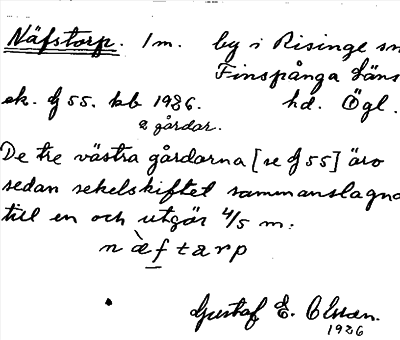 Näfstorp. 1 m. by i Risinge sn
Finspånga läns
ek. G 55. kb 1926. hd. Ögl.
2 gårdar.
De tre västra gårdarna [se G 55] äro
sedan sekelskiftet sammanslagna
till en och utgör 4/5 m:
næ̀ftarp
Gustaf E. Olsson.
1926